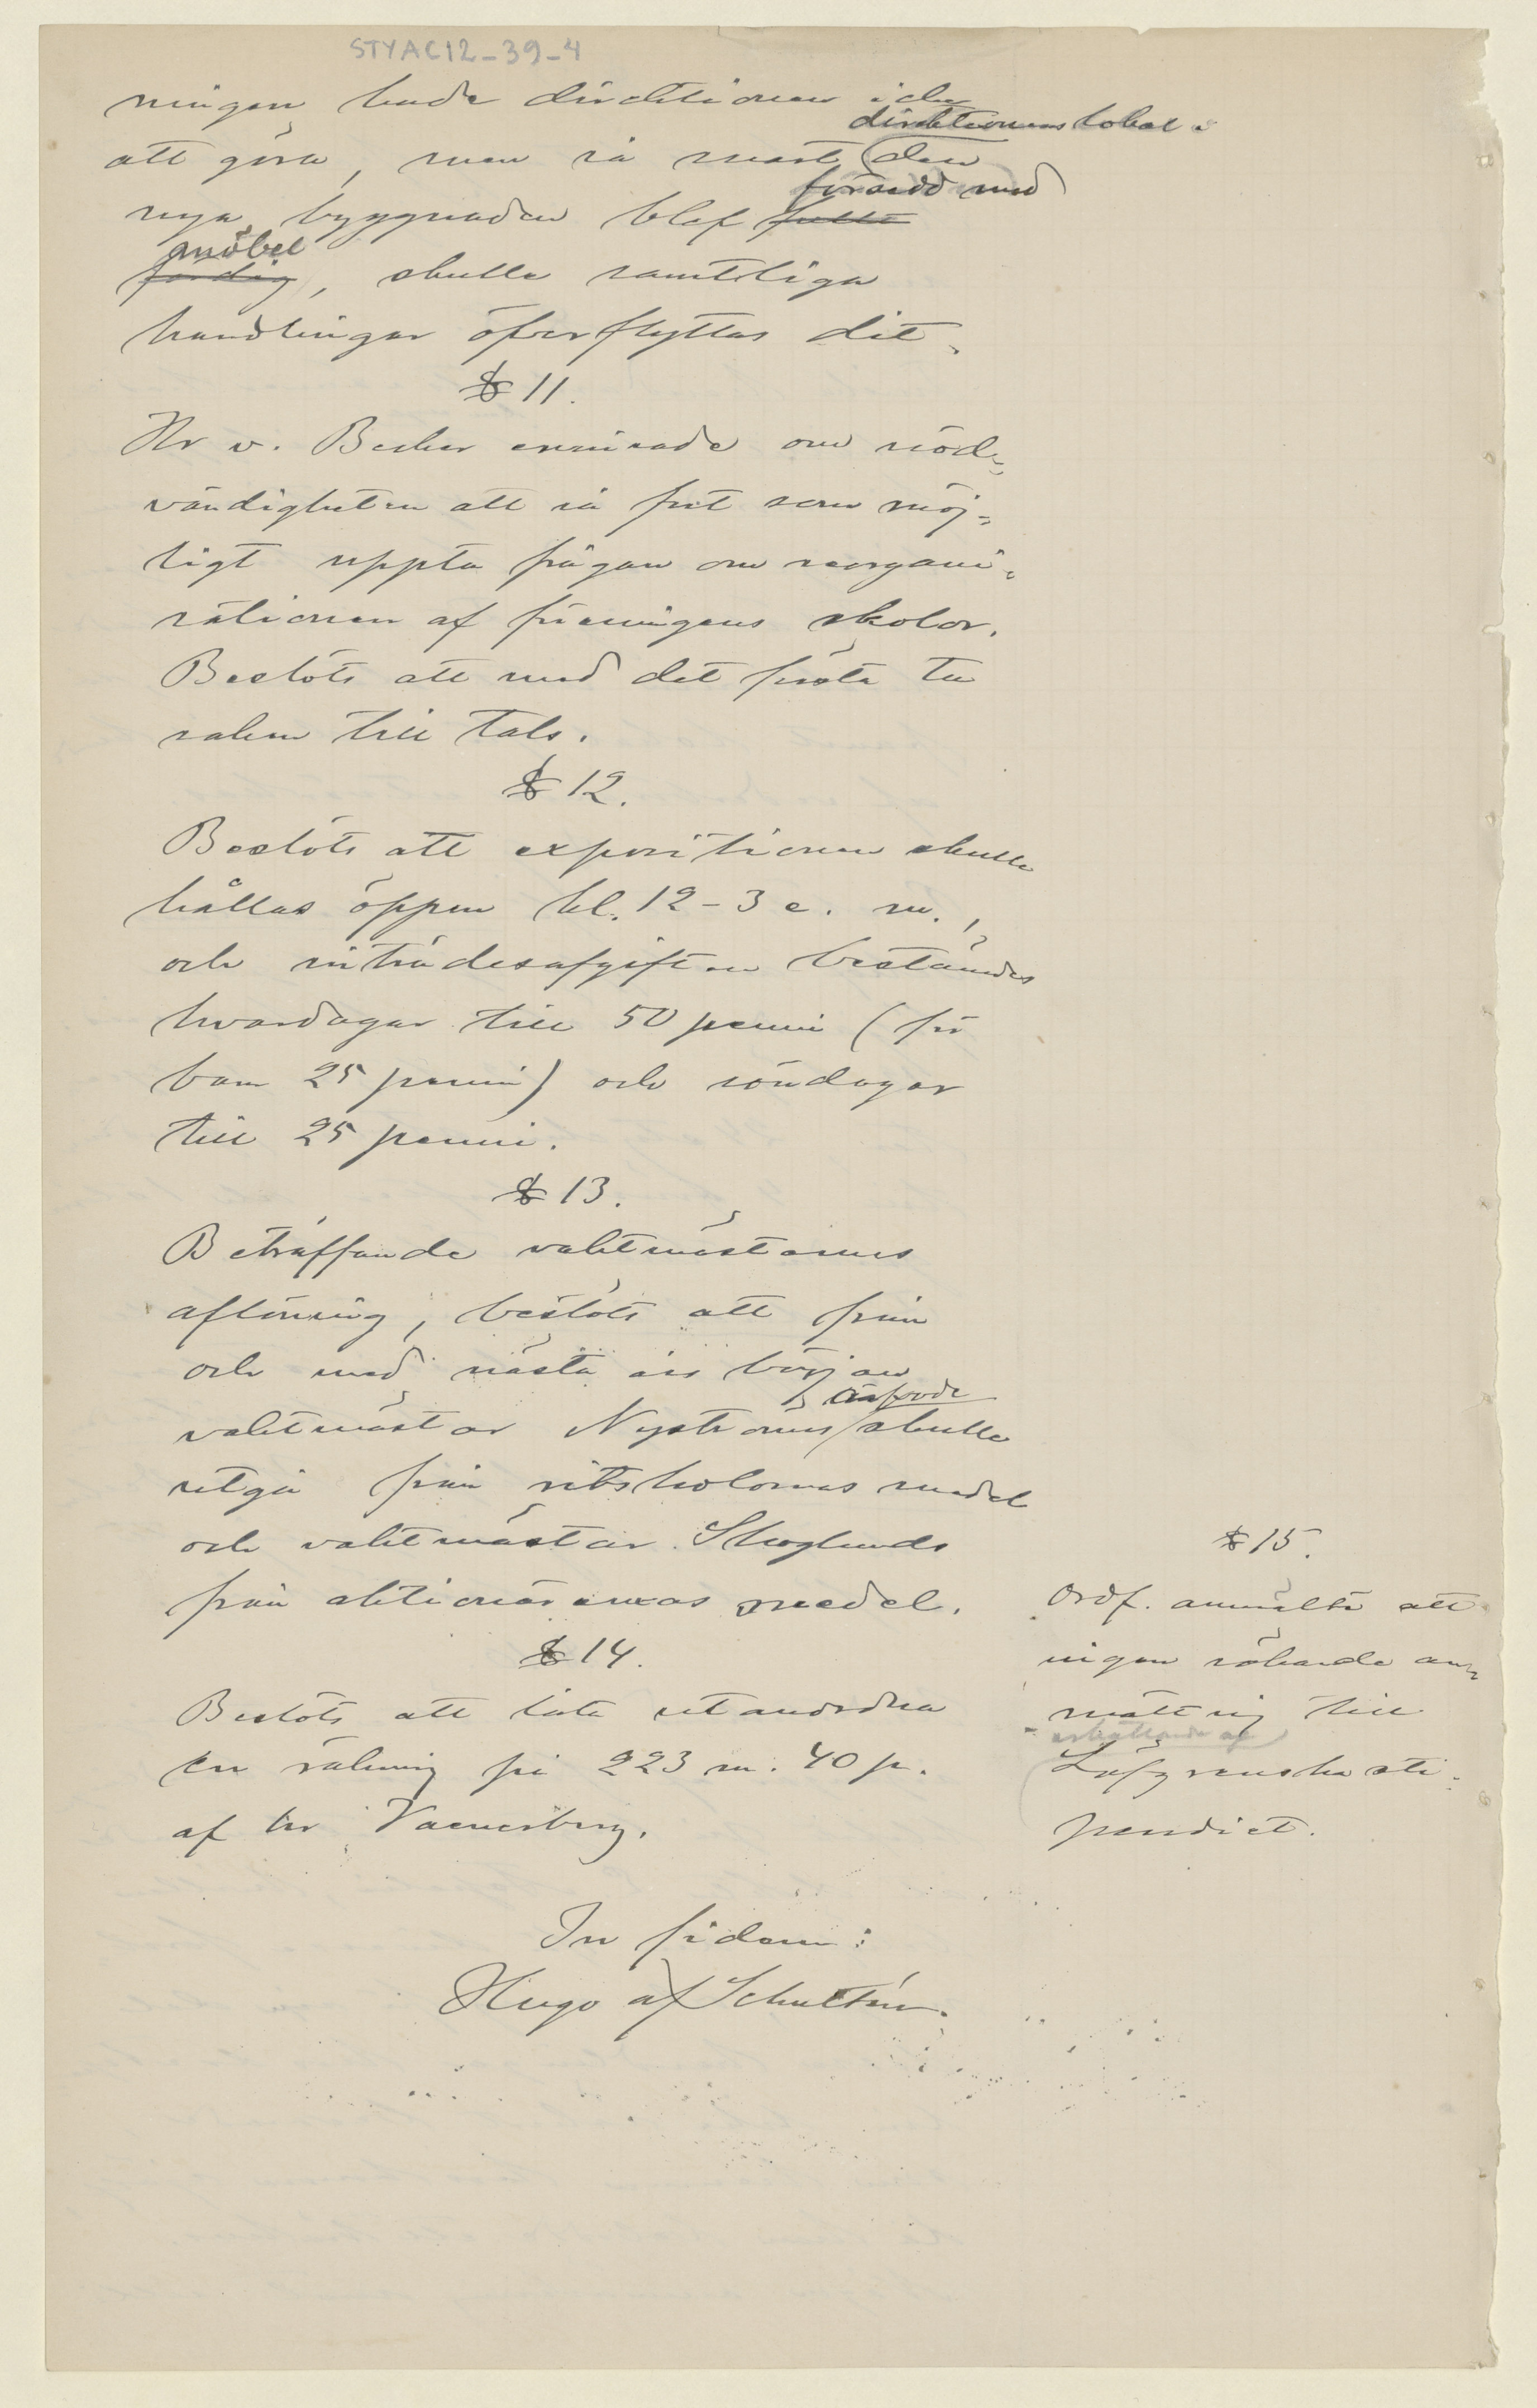 STYAC12-39-4
ningen hade direktionen icke
direktionens lokal i
att göra, men så snart den
försedd med
nya byggnaden blef fullt
möbel
färdig, skulle samtliga
handlingar öfverflyttas dit.
§ 11.
Hr v. Becker erinrade om nöd-
vändigheten att så fort som möj-
ligt uppta frågan om reorgani-
sationen af föreningens skolor.
Beslöts att med det första ta
saken till tals.
§ 12.
Beslöts att expositionen skulle
hållas öppen kl. 12-3 e. m.,
och inträdesafgiften bestämdes
hvardagar till 50 penni (för
barn 25 penni) och söndagar
till 25 penni.
§ 13.
Beträffande vaktmästarnes
aflöning, beslöts att från
och med nästa års början
arfvode
vaktmästar Nyströms skulle
utgå från ritskolornas medel
och vaktmästar Skoglunds
från aktionärernas medel.
§ 14.
Beslöts att låta utanordna
en räkning på 223 m. 40 p.
af hr Vaenerberg.
In fidem:
Hugo af Schultén.
§ 15.
Ordf. anmälte att
ingen sökande an-
mält sig till
erhållande af
Löfgrenska sti-
pendiet.